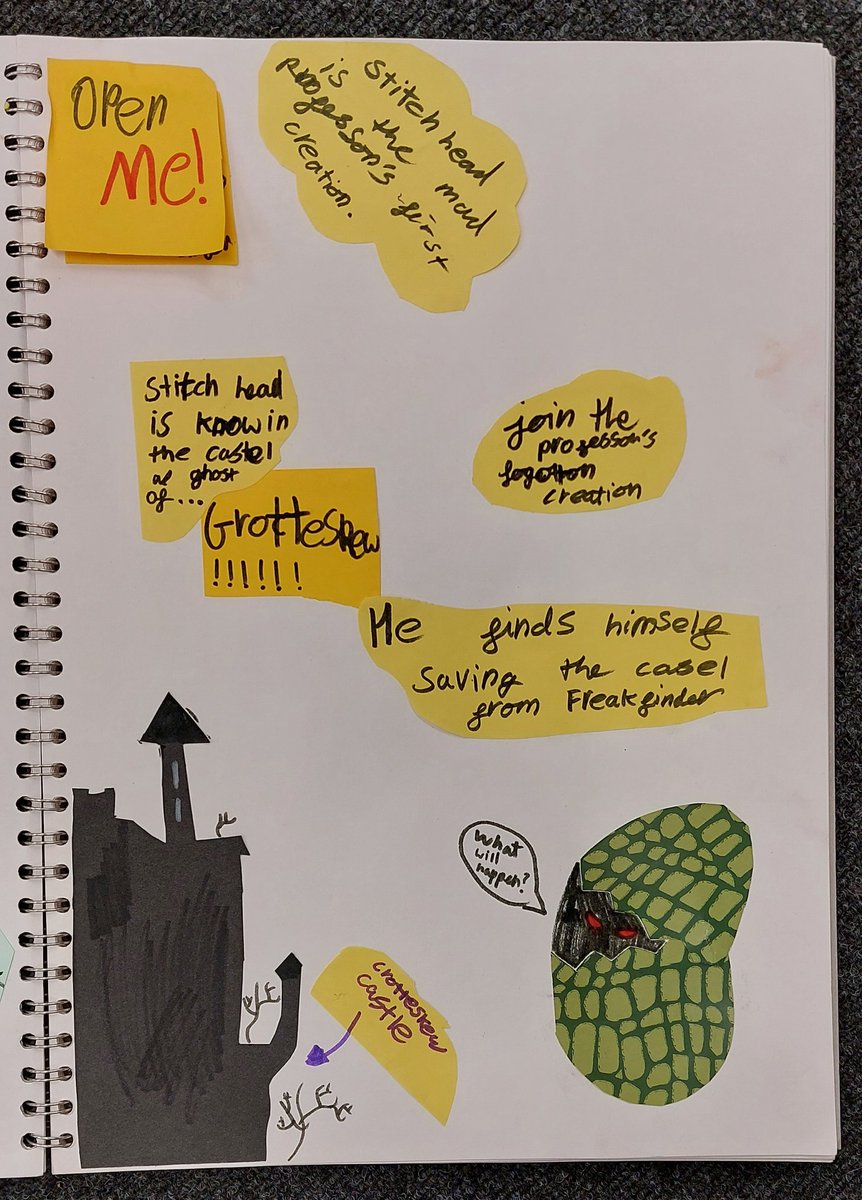 Open
Me!
Stitch head
is the mad
professon's first
creation.
Stitch head
is know in
the castel
as ghost
of...
Grotteskew
!!!!!!
join the
professon's
fogotton
creation
He finds himself
saving the casel
from Freakfinder
What
will
happen?
Crotteskew
castle